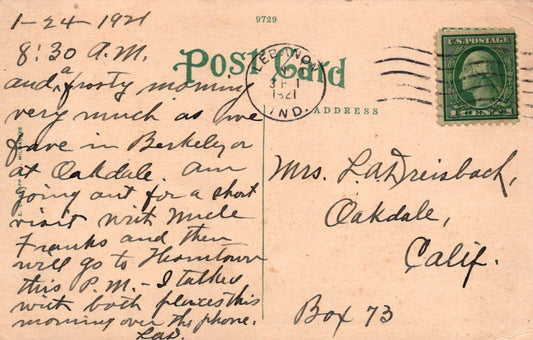 1-24-1921
8:30 A.M.
and a frosty morning
very much as we
have in Berkeley or
at Oakdale. Am
going out for a short
visit with Uncle
Franks and then
will go to Thorntown
this P.M. - I talked
with both places this
morning over the phone.
L.A.D.
9729
POST CARD
ADDRESS
LEBANON
3 P
1921
IND.
U.S. POSTAGE
1 CENT 1
Mrs. L.A. Dreisbach,
Oakdale,
Calif.
Box 73